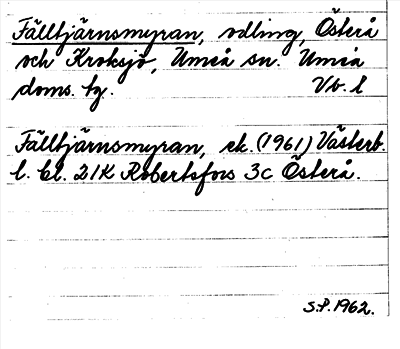 Fälltjärnsmyran, odling, Österå
och Kroksjö, Umeå sn. Umeå
doms. tg. Vb. l
Fälltjärnsmyran, ek. (1961) Västerb.
l. bl. 21K Robertsfors 3c Österå.
S.P. 1962.